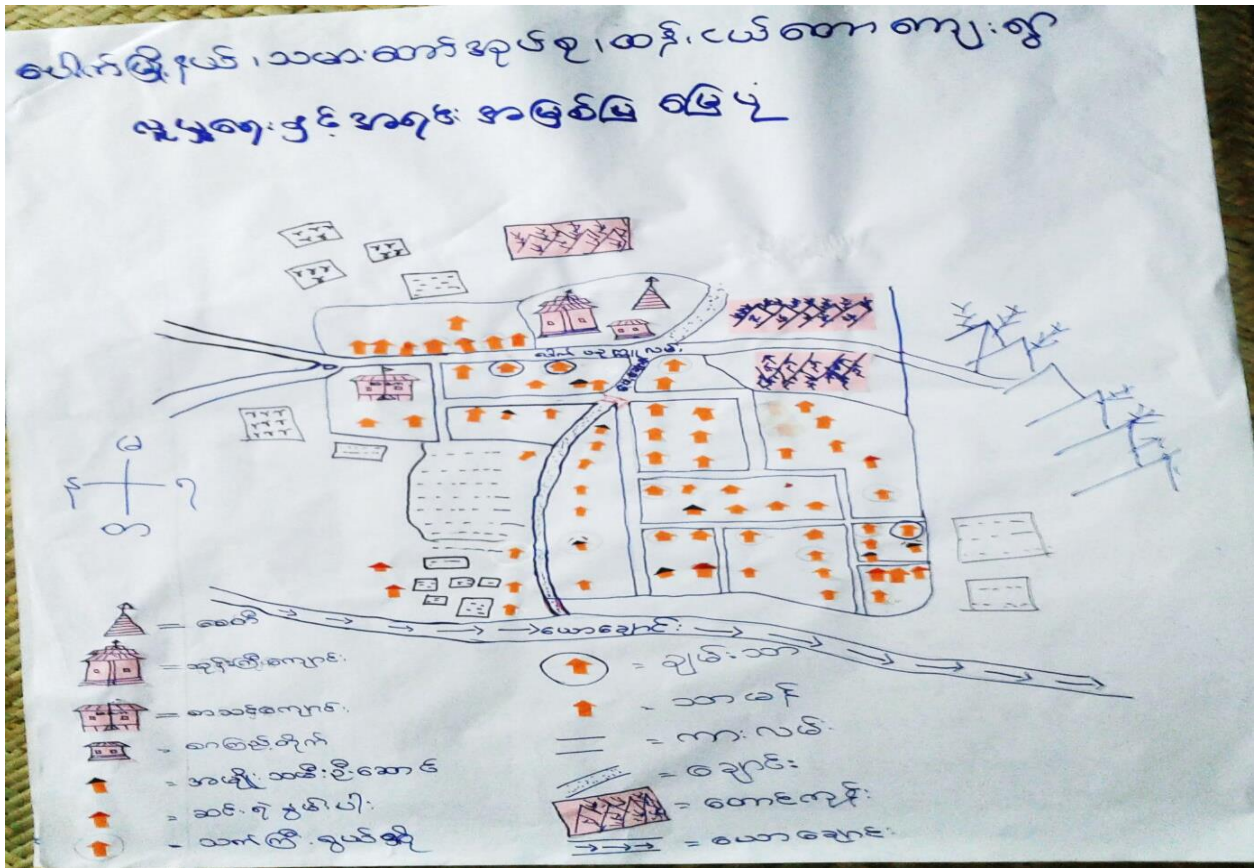 ပေါက်မြို့နယ်၊ သမားတော်အုပ်စု၊ ထန်းငယ်တောကျေးရွာ
လူမှုရေးနှင့်အရင်းအမြစ်ပြ မြေပုံ
ပေါက်
လမ်း
မ
န
ရ
တ
ယောချောင်း
= စေတီ
= ဘုန်းကြီးကျောင်း
= စာသင်ကျောင်း
= စာကြည့်တိုက်
= အမျိုးသမီးဦးဆောင်
= ဆင်းရဲနွမ်းပါး
= သက်ကြီးရွယ်အို
= ချမ်းသာ
= သာမန်
= ကားလမ်း
= ချောင်း
= တောင်ကုန်း
= ယောချောင်း